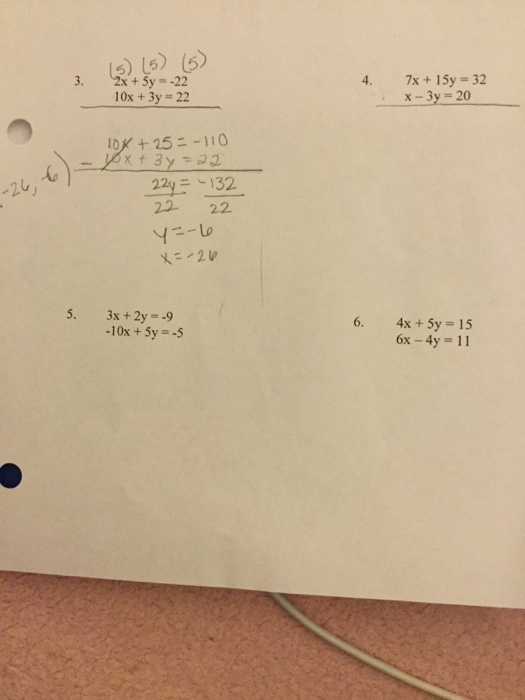 (5) (5) (5)
3. 2x + 5y = -22
10x + 3y = 22
10x + 25 = -110
- 10x + 3y = 22
22y = -132
22 22
y = -6
x = -26
-26, 6)
4. 7x + 15y = 32
x – 3y = 20
5. 3x + 2y = -9
-10x + 5y = -5
6. 4x + 5y = 15
6x – 4y = 11